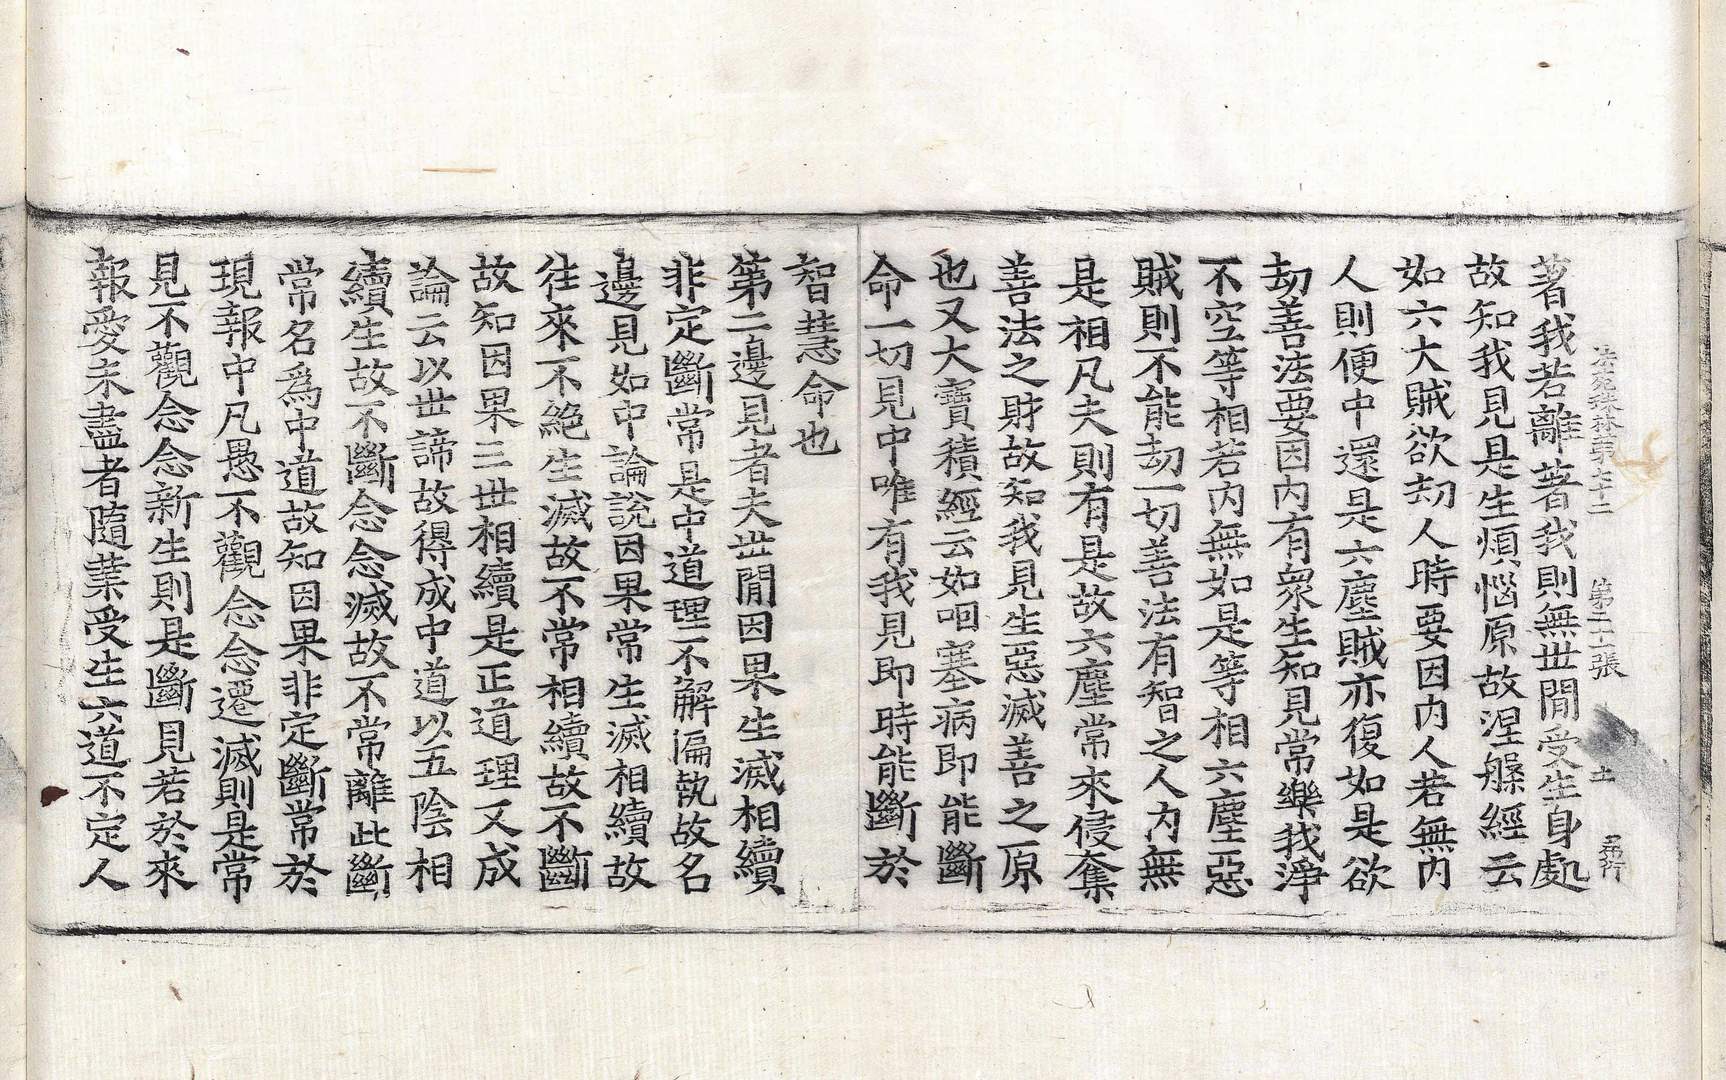 法苑珠林第七十二　第二十張
著我若離著我則無世閒受生身處
故知我見是生煩惱原故涅槃經云
如六大賊欲刧人時要因内人若無内
人則便中還是六塵賊亦復如是欲
刧善法要因内有衆生知見常樂我淨
不空等相若内無如是等相六塵惡
賊則不能刧一切善法有智之人内無
是相凡夫則有是故六塵常來侵奪
善法之財故知我見生惡滅善之原
也又大寶積經云如咽塞病即能斷
命一切見中唯有我見即時能斷於
智慧命也
第二邊見者夫世閒因果生滅相續
非定斷常是中道理不解偏執故名
邊見如中論說因果常生滅相續故
往來不絶生滅故不常相續故不斷
故知因果三世相續是正道理又成
論云以世諦故得成中道以五陰相
續生故不斷念念滅故不常離此斷
常名爲中道故知因果非定斷常於
現報中凡愚不觀念念遷滅則是常
見不觀念念新生則是斷見若於來
報愛未盡者隨業受生六道不定人